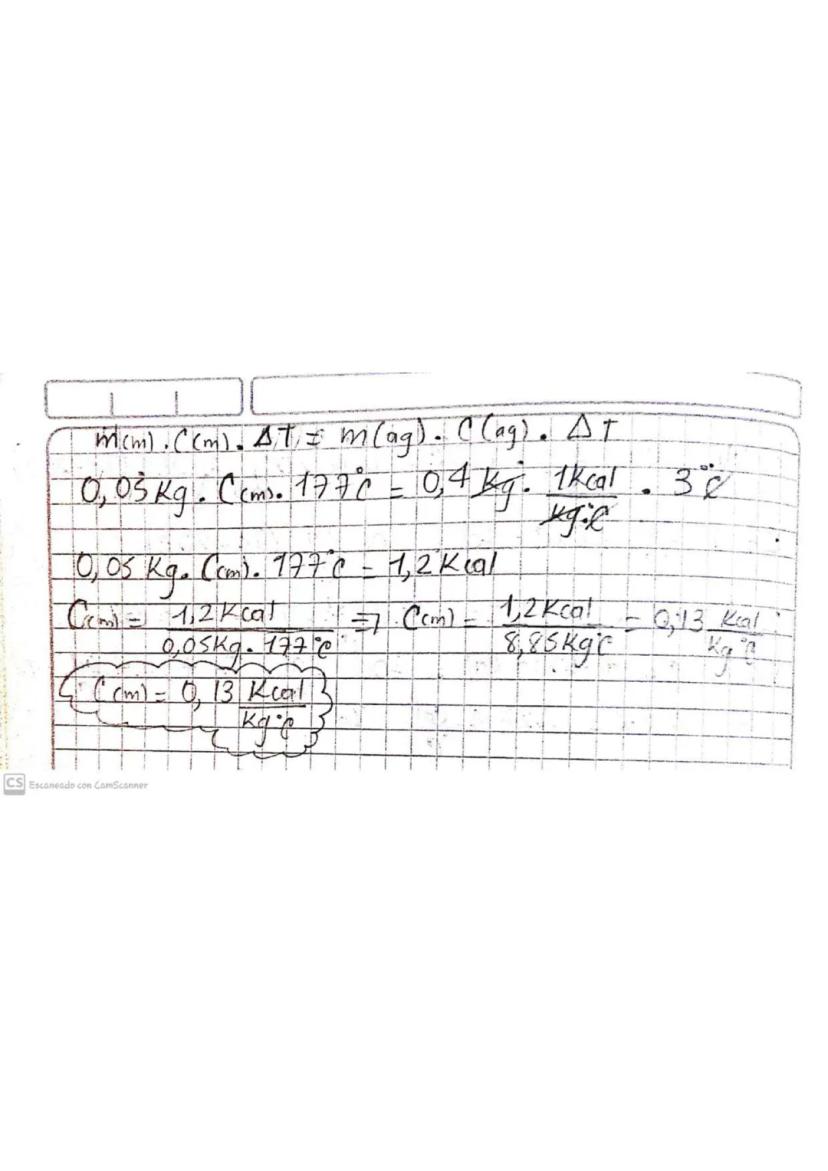 m(m) . C(m) . ΔT = m(ag) . C(ag) . ΔT
0,05 Kg . C(m) . 177°C = 0,4 Kg . 1Kcal/Kg.°C . 3°C
0,05 Kg. C(m). 177°C = 1,2 Kcal
C(m) = 1,2 Kcal/0,05Kg . 177°C ⇒ C(m) = 1,2 Kcal/8,85Kg°C = 0,13 Kcal/Kg°C
C(m) = 0,13 Kcal/Kg°C
CS Escaneado con CamScanner